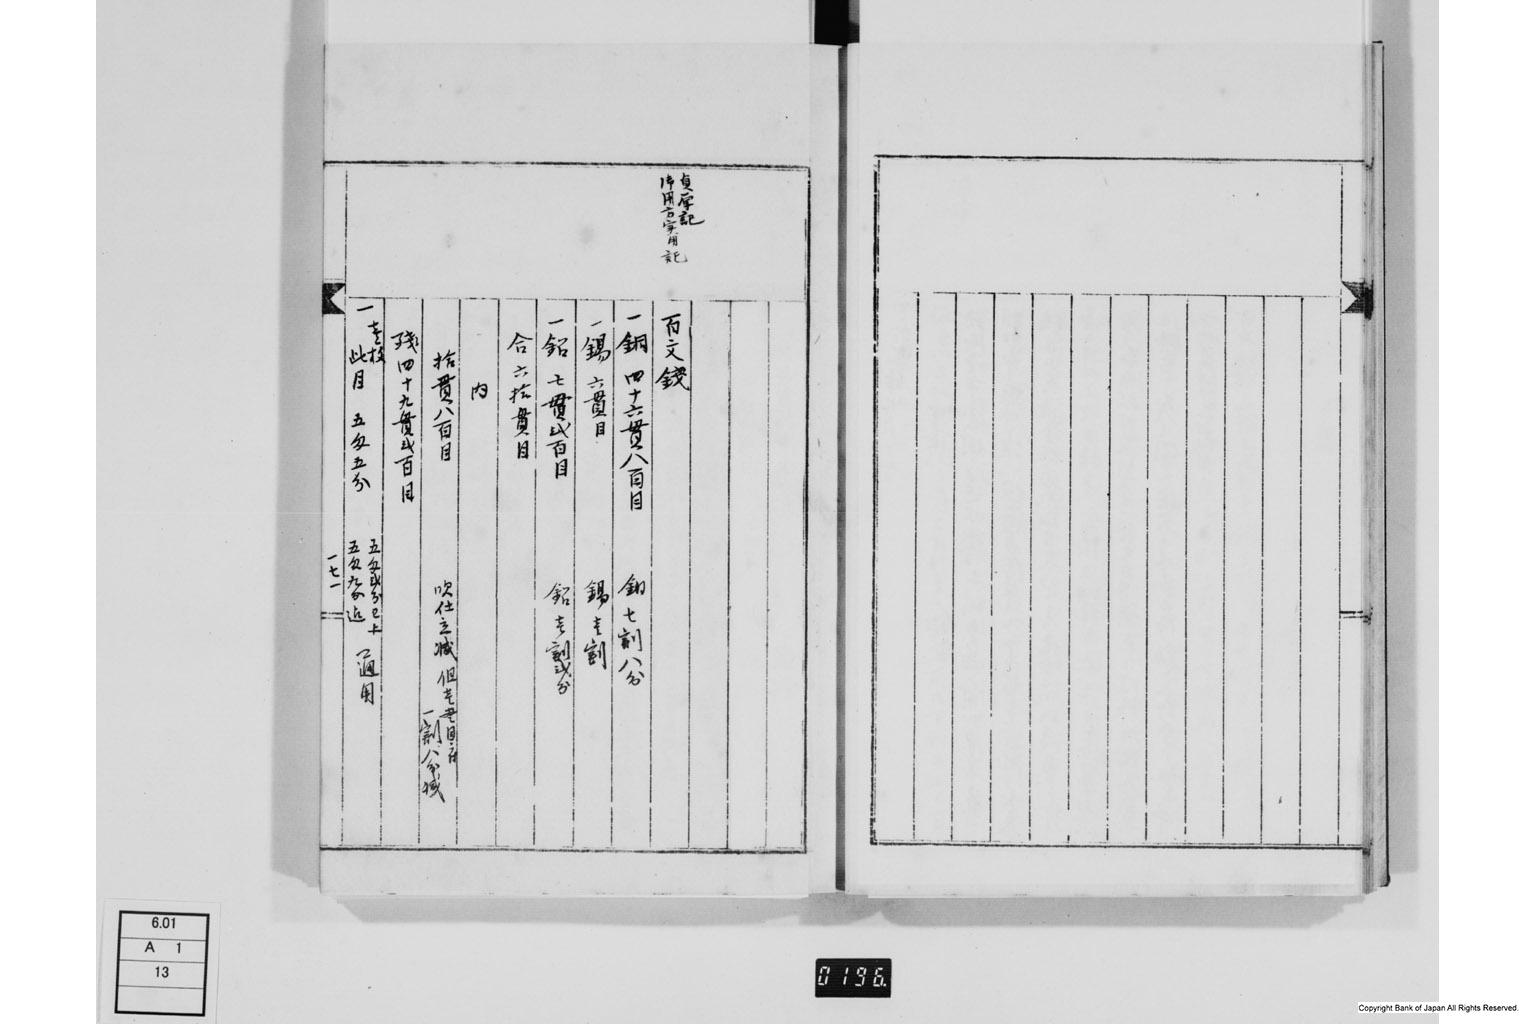 貞享記
百文錢
一銅 四十六貫八百目 銅七割八分
一錫 六貫目 錫壱割
一鉛 七貫弐百目 鉛壱割弐分
合六拾貫目
内
拾貫八百目 吹仕立減 但壱貫目ニ付
一割八分減
残四十九貫弐百目
一壱枚
此目 五匁五分 五匁弐分已上
五匁九分迄 通用
一七一
6.01
A 1
13
0196.
Copyright Bank of Japan All Rights Reserved.